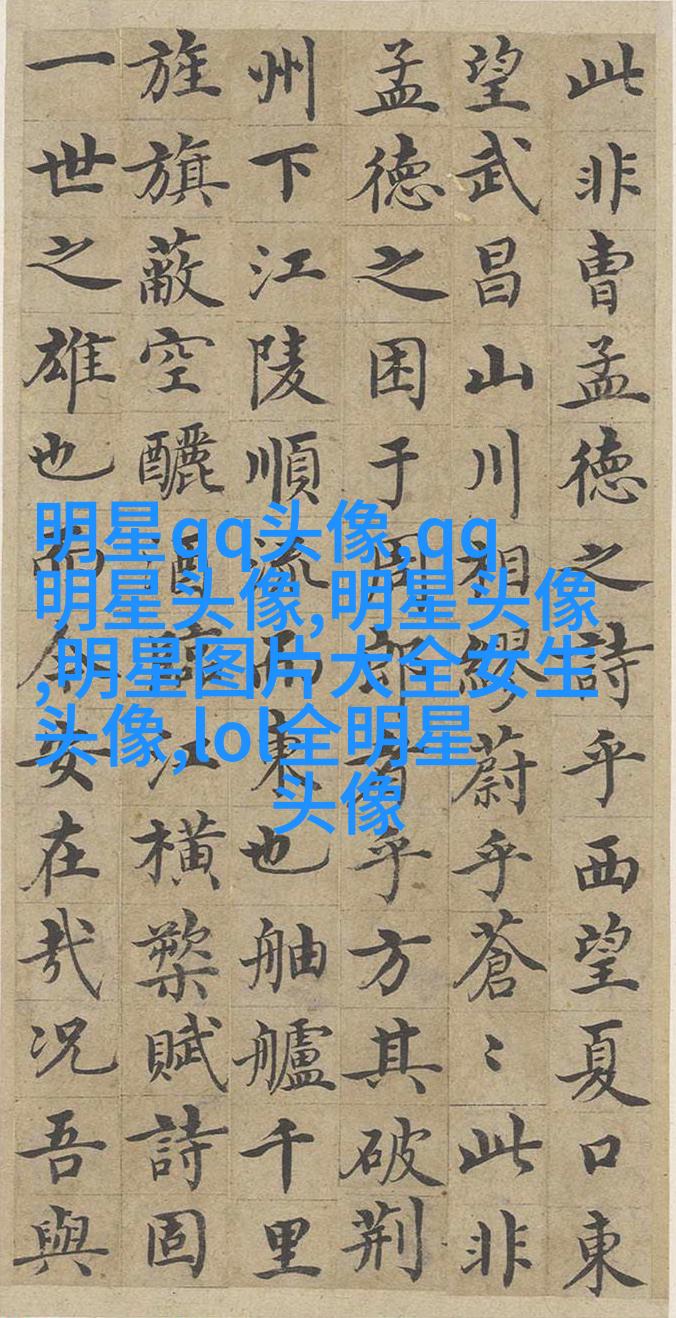 此非曹孟德之詩乎西望夏口東
望武昌山川相繆蔚乎蒼〻此非
孟德之困于周郎者乎方其破荆
州下江陵順流而東也舳艫千里
旌旗蔽空釃酒臨江橫槊賦詩固
一世之雄也而今安在哉况吾與
明星qq头像,qq
明星头像,明星头像
,明星图片大全女生
头像,lol全明星
头像